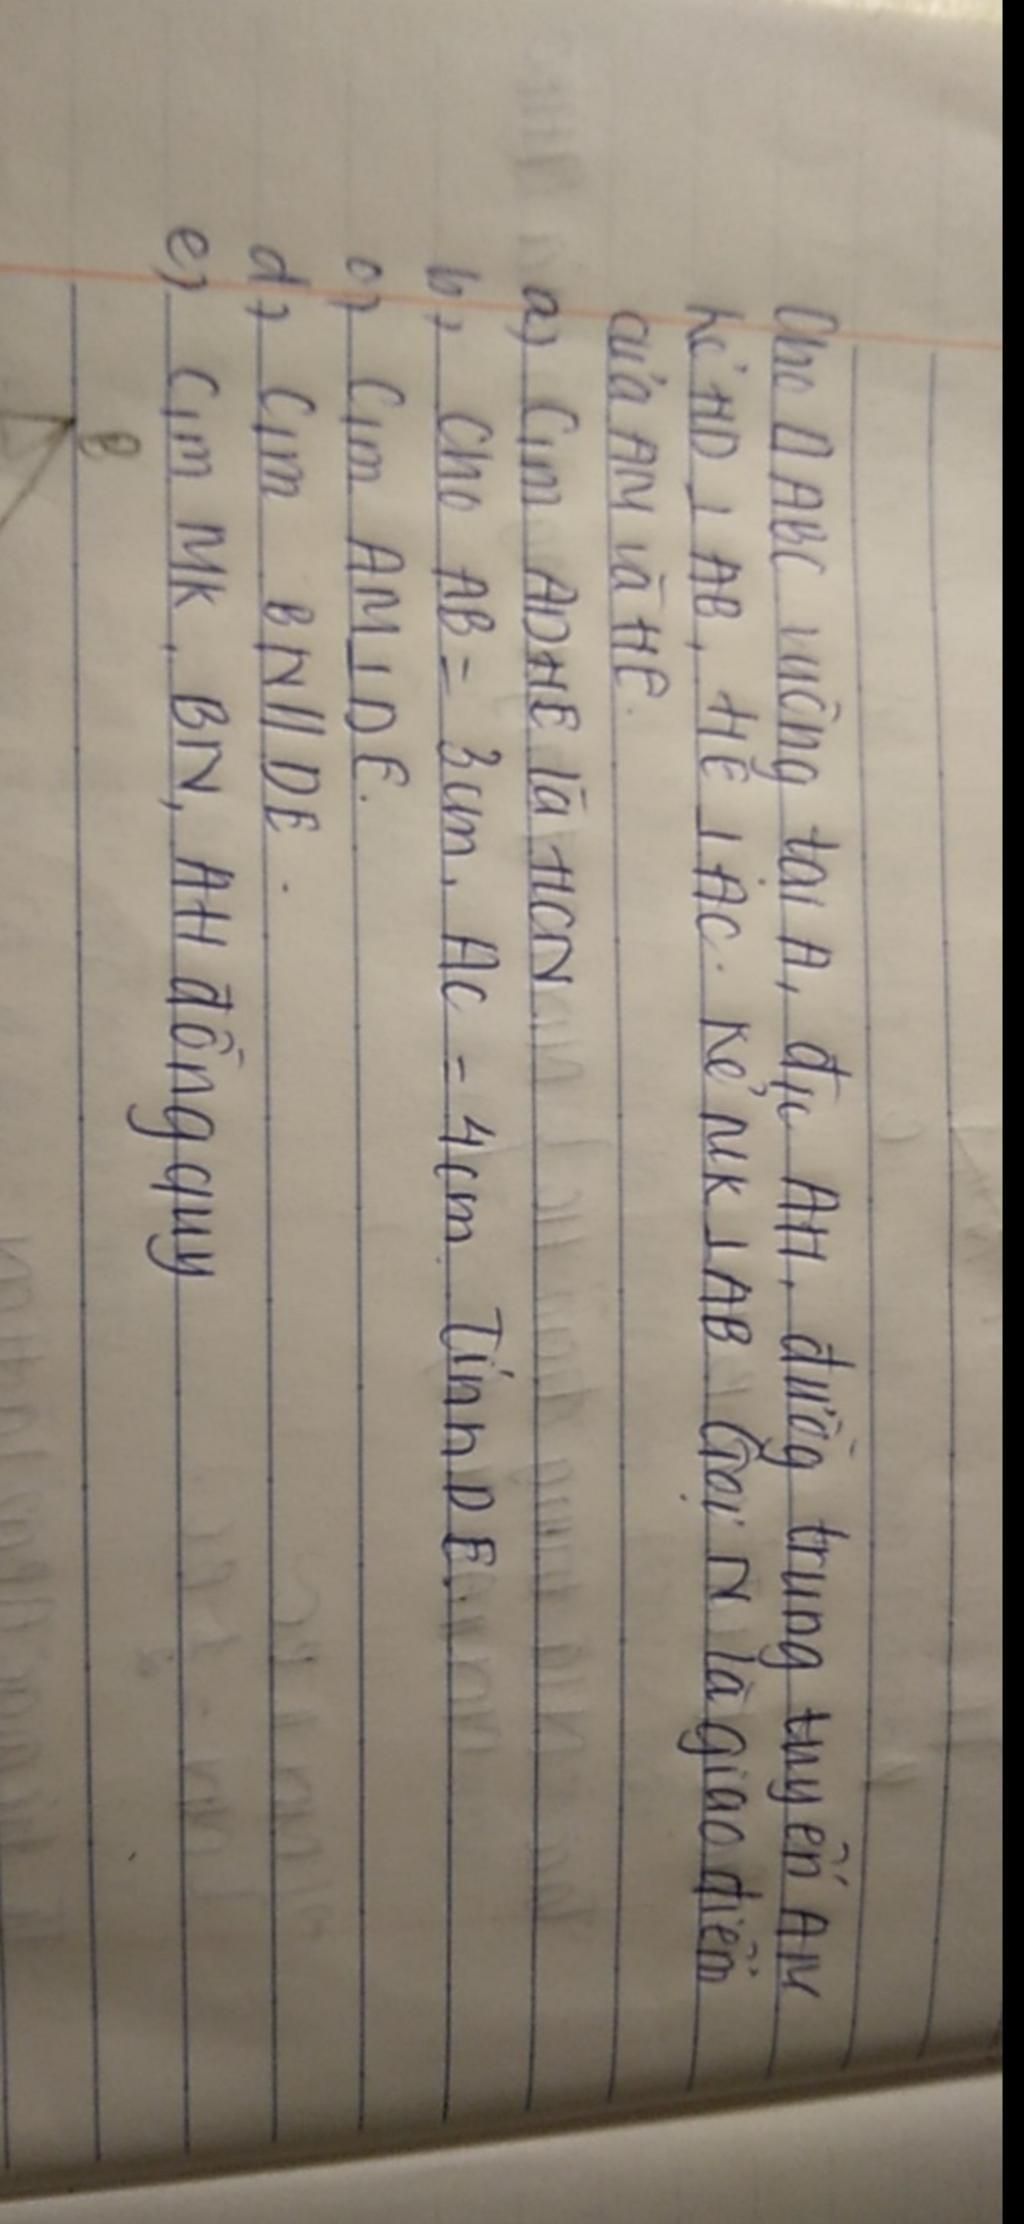 Cho Δ ABC vuông tại A, đ/c AH, đường trung tuyến AM
kẻ HD ⊥ AB, HE ⊥ AC. Kẻ MK ⊥ AB Gọi N là giao điểm
của AM và HE.
a) Cm ADHE là HCN
b) Cho AB = 3cm, AC = 4cm Tính DE.
c) Cm AM ⊥ DE.
d) Cm BN // DE.
e) Cm MK, BN, AH đồng quy
B